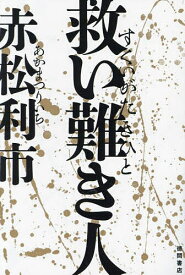 救い難き人
すくいがたきひと
赤松利市
あかまつりいち
徳間書店